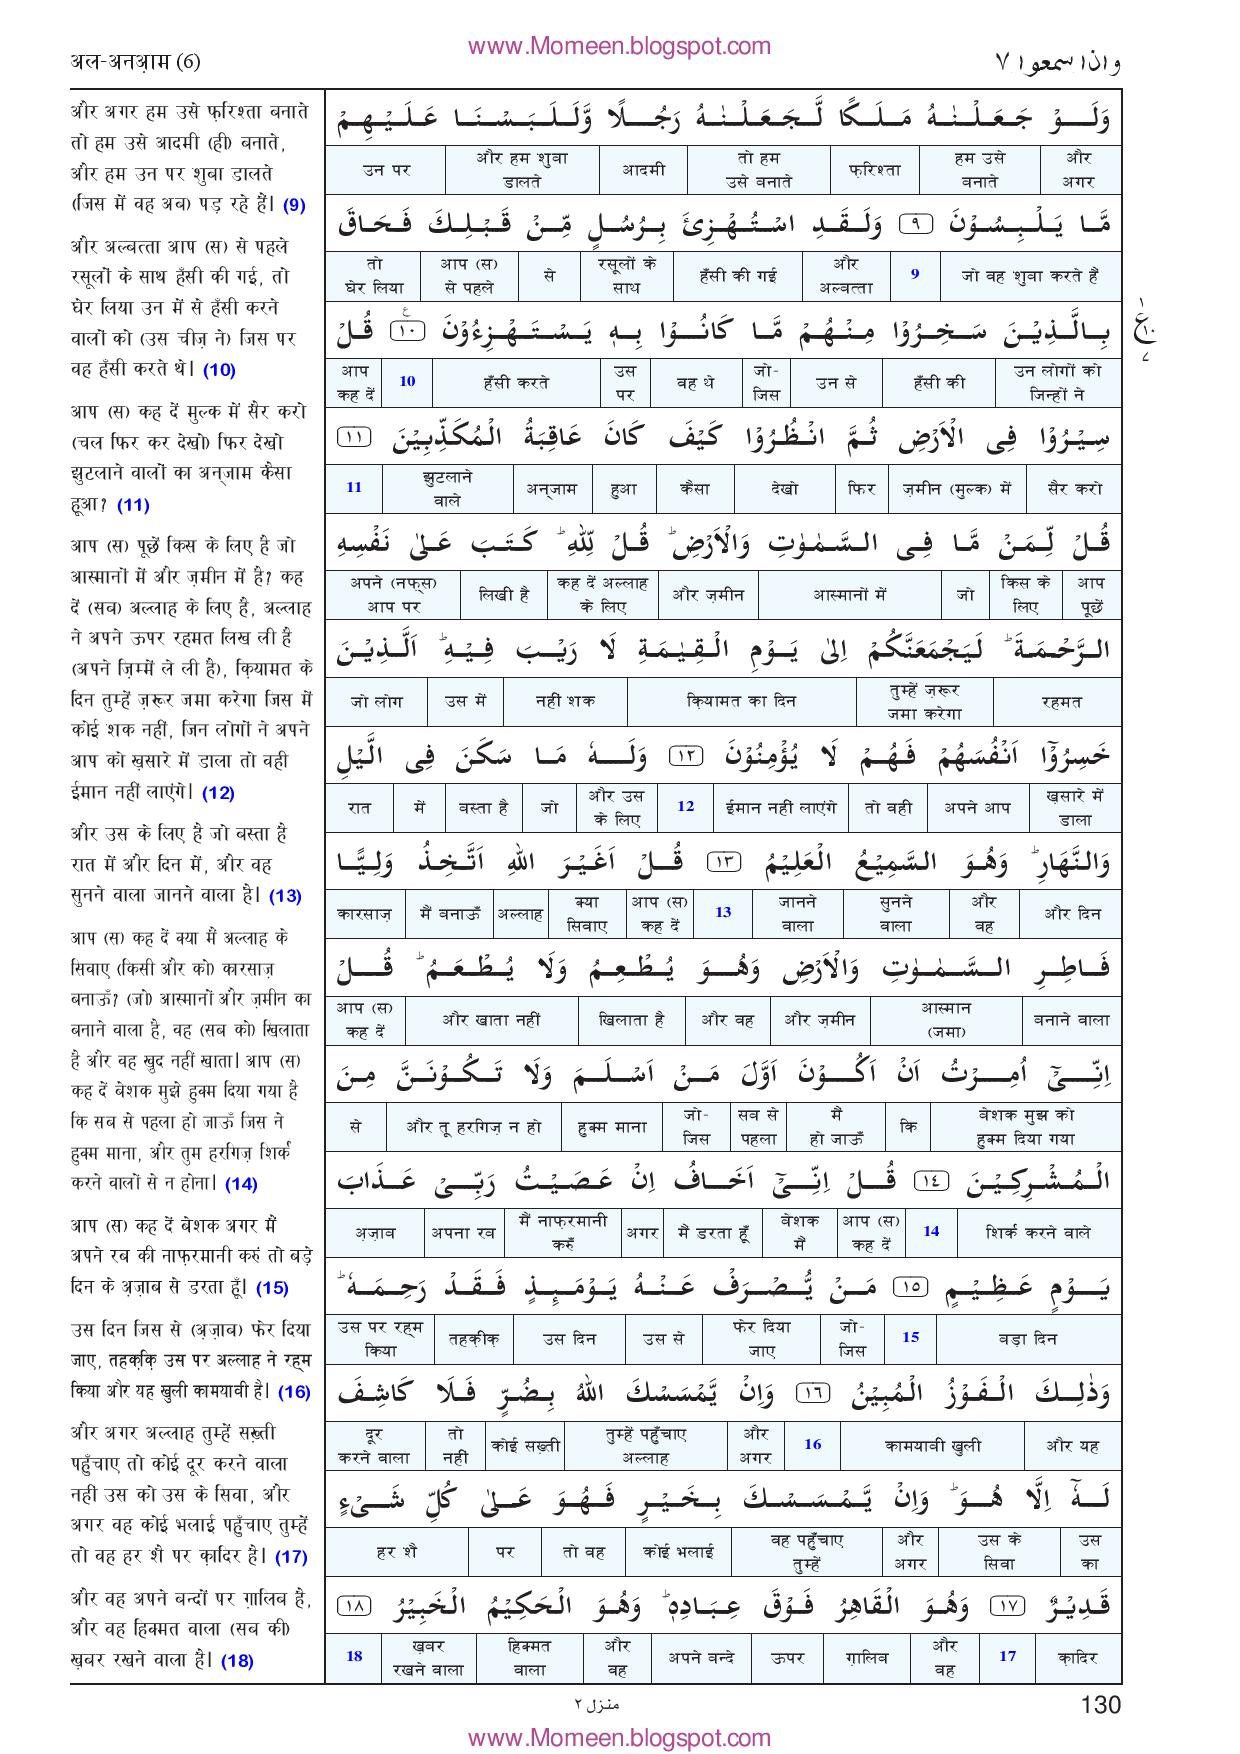 www.Momeen.blogspot.com
अल-अनआ़म (6)
واذاسمعوا ٧
और अगर हम उसे फ़रिश्ता बनाते
तो हम उसे आदमी (ही) बनाते,
और हम उन पर शुबा डालते
(जिस में वह अब) पड़ रहे हैं। (9)
और अल्बत्ता आप (स) से पहले
रसूलों के साथ हँसी की गई, तो
घेर लिया उन में से हँसी करने
वालों को (उस चीज़ ने) जिस पर
वह हँसी करते थे। (10)
आप (स) कह दें मुल्क में सैर करो
(चल फिर कर देखो) फिर देखो
झुटलाने वालों का अन्जाम कैसा
हूआ? (11)
आप (स) पूछें किस के लिए है जो
आस्मानों में और ज़मीन में है? कह
दें (सब) अल्लाह के लिए है, अल्लाह
ने अपने ऊपर रहमत लिख ली है
(अपने ज़िम्में ले ली है), क़ियामत के
दिन तुम्हें ज़रूर जमा करेगा जिस में
कोई शक नहीं, जिन लोगों ने अपने
आप को ख़सारे में डाला तो वही
ईमान नहीं लाएंगे। (12)
और उस के लिए है जो बस्ता है
रात में और दिन में, और वह
सुनने वाला जानने वाला है। (13)
आप (स) कह दें क्या मैं अल्लाह के
सिवाए (किसी और को) कारसाज़
बनाऊँ? (जो) आस्मानों और ज़मीन का
बनाने वाला है, वह (सब को) खिलाता
है और वह खुद नहीं खाता। आप (स)
कह दें बेशक मुझे हुक्म दिया गया है
कि सब से पहला हो जाऊँ जिस ने
हुक्म माना, और तुम हरगिज़ शिर्क
करने वालों से न होना। (14)
आप (स) कह दें बेशक अगर मैं
अपने रब की नाफ़रमानी करुं तो बड़े
दिन के अ़ज़ाब से डरता हूँ। (15)
उस दिन जिस से (अ़ज़ाब) फेर दिया
जाए, तहक़ीक़ उस पर अल्लाह ने रहम
किया और यह खुली कामयाबी है। (16)
और अगर अल्लाह तुम्हें सख़्ती
पहुँचाए तो कोई दूर करने वाला
नहीं उस को उस के सिवा, और
अगर वह कोई भलाई पहुँचाए तुम्हें
तो वह हर शै पर क़ादिर है। (17)
और वह अपने बन्दों पर ग़ालिब है,
और वह हिक्मत वाला (सब की)
ख़बर रखने वाला है। (18)
وَلَوْ جَعَلْنٰهُ مَلَكًا لَّجَعَلْنٰهُ رَجُلًا وَّلَلَبَسْنَا عَلَيْهِمْ
उन पर और हम शुबा डालते आदमी तो हम उसे बनाते फ़रिश्ता हम उसे बनाते और अगर
مَّا يَلْبِسُوْنَ ٩ وَلَقَدِ اسْتُهْزِئَ بِرُسُلٍ مِّنْ قَبْلِكَ فَحَاقَ
तो घेर लिया आप (स) से पहले से रसूलों के साथ हँसी की गई और अल्बत्ता 9 जो वह शुबा करते हैं
بِالَّذِيْنَ سَخِرُوْا مِنْهُمْ مَّا كَانُوْا بِهٖ يَسْتَهْزِءُوْنَ ١٠ قُلْ
आप कह दें 10 हँसी करते उस पर वह थे जो-जिस उन से हँसी की उन लोगों को जिन्हों ने
سِيْرُوْا فِى الْاَرْضِ ثُمَّ انْظُرُوْا كَيْفَ كَانَ عَاقِبَةُ الْمُكَذِّبِيْنَ ١١
11 झुटलाने वाले अन्जाम हुआ कैसा देखो फिर ज़मीन (मुल्क) में सैर करो
قُلْ لِّمَنْ مَّا فِى السَّمٰوٰتِ وَالْاَرْضِ ؕ قُلْ لِّلّٰهِ ؕ كَتَبَ عَلٰى نَفْسِهِ
अपने (नफ़्स) आप पर लिखी है कह दें अल्लाह के लिए और ज़मीन आस्मानों में जो किस के लिए आप पूछें
الرَّحْمَةَ ؕ لَيَجْمَعَنَّكُمْ اِلٰى يَوْمِ الْقِيٰمَةِ لَا رَيْبَ فِيْهِ ؕ اَلَّذِيْنَ
जो लोग उस में नहीं शक क़ियामत का दिन तुम्हें ज़रूर जमा करेगा रहमत
خَسِرُوْۤا اَنْفُسَهُمْ فَهُمْ لَا يُؤْمِنُوْنَ ١٢ وَلَهٗ مَا سَكَنَ فِى الَّيْلِ
रात में बस्ता है जो और उस के लिए 12 ईमान नहीं लाएंगे तो वही अपने आप ख़सारे में डाला
وَالنَّهَارِ ؕ وَهُوَ السَّمِيْعُ الْعَلِيْمُ ١٣ قُلْ اَغَيْرَ اللّٰهِ اَتَّخِذُ وَلِيًّا
कारसाज़ मैं बनाऊँ अल्लाह क्या सिवाए आप (स) कह दें 13 जानने वाला सुनने वाला और वह और दिन
فَاطِرِ السَّمٰوٰتِ وَالْاَرْضِ وَهُوَ يُطْعِمُ وَلَا يُطْعَمُ ؕ قُلْ
आप (स) कह दें और खाता नहीं खिलाता है और वह और ज़मीन आस्मान (जमा) बनाने वाला
اِنِّىْۤ اُمِرْتُ اَنْ اَكُوْنَ اَوَّلَ مَنْ اَسْلَمَ وَلَا تَكُوْنَنَّ مِنَ
से और तू हरगिज़ न हो हुक्म माना जो-जिस सब से पहला मैं हो जाऊँ कि बेशक मुझ को हुक्म दिया गया
الْمُشْرِكِيْنَ ١٤ قُلْ اِنِّىْۤ اَخَافُ اِنْ عَصَيْتُ رَبِّىْ عَذَابَ
अ़ज़ाब अपना रब मैं नाफ़रमानी करुँ अगर मैं डरता हूँ बेशक मैं आप (स) कह दें 14 शिर्क करने वाले
يَوْمٍ عَظِيْمٍ ١٥ مَنْ يُّصْرَفْ عَنْهُ يَوْمَئِذٍ فَقَدْ رَحِمَهٗ ؕ
उस पर रहम किया तहक़ीक़ उस दिन उस से फेर दिया जाए जो-जिस 15 बड़ा दिन
وَذٰلِكَ الْفَوْزُ الْمُبِيْنُ ١٦ وَاِنْ يَّمْسَسْكَ اللّٰهُ بِضُرٍّ فَلَا كَاشِفَ
दूर करने वाला तो नहीं कोई सख़्ती तुम्हें पहुँचाए अल्लाह और अगर 16 कामयाबी खुली और यह
لَهٗۤ اِلَّا هُوَ ؕ وَاِنْ يَّمْسَسْكَ بِخَيْرٍ فَهُوَ عَلٰى كُلِّ شَىْءٍ
हर शै पर तो वह कोई भलाई वह पहुँचाए तुम्हें और अगर उस के सिवा उस का
قَدِيْرٌ ١٧ وَهُوَ الْقَاهِرُ فَوْقَ عِبَادِهٖ ؕ وَهُوَ الْحَكِيْمُ الْخَبِيْرُ ١٨
18 ख़बर रखने वाला हिक्मत वाला और वह अपने बन्दे ऊपर ग़ालिब और वह 17 क़ादिर
١
ع
١٠
٧
منزل ٢
130
www.Momeen.blogspot.com